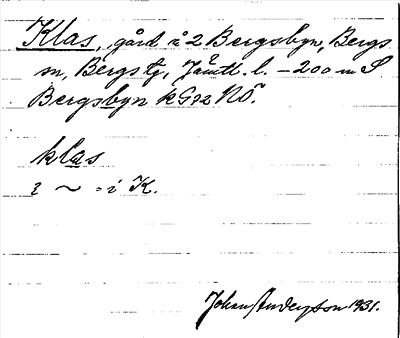 Klas, gård i 2 Bergsbyn, Bergs
sn, Bergs tg, Jämtl. l. – 200 m S
Bergsbyn kG92NÖ.
klas
i ~ = i K.
Johan Andersson 1931.